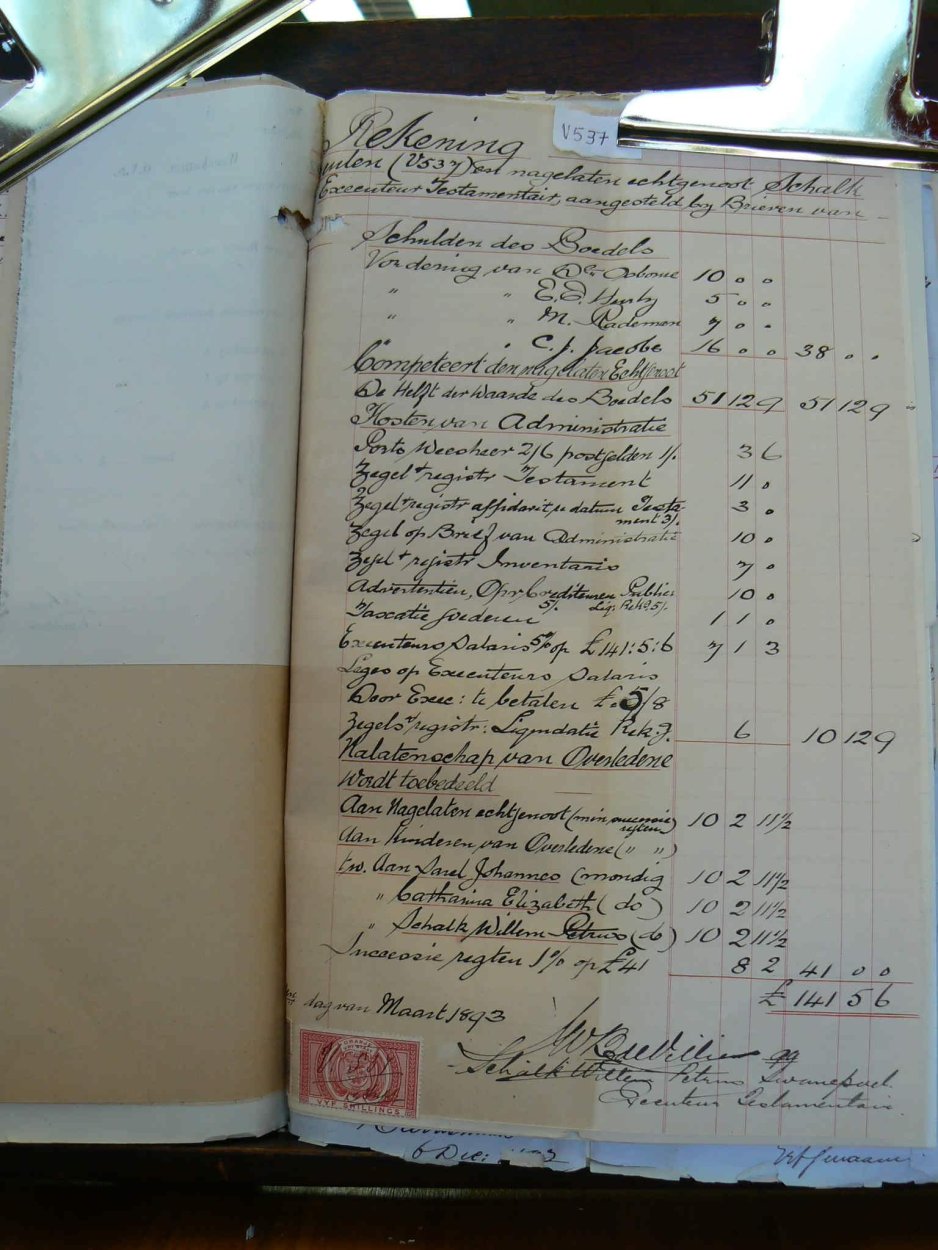 V537
Rekening
(V537) en nagelaten echtgenoot Schalk
Executeur Testamentair, aangesteld by Brieven van
Schulden des Boedels
Vordering van Osborne 10 0 0
" " E. D. 5 0 0
" " M. Rademan 7 0 0
" C. J. Jacobs 16 0 0 38 0 0
Competeert den nagelaten Echtgenoot
De Helft der Waarde des Boedels 51 12 9 51 12 9
Kosten van Administratie
Porto Weesheer 2/6 postgelden 1/. 3 6
Zegel & registr Testament 11 0
Zegel & registr affidavit u datum Testa
ment 3/. 3 0
Zegel op Brief van Administratie 10 0
Zegel & registr Inventaris 7 0
Advertentien, Opr. Crediteuren Public:
5/. Liq: Rek g 5/. 10 0
Taxatie goederen 1 1 0
Executeurs Salaris 5% op £141:5:6 7 1 3
Leges op Executeurs Salaris
Door Exec: te betalen £. 5/8
Zegels & registr: Liquidatie Rek:g. 6 10 12 9
Nalatenschap van Overledene
Wordt toebedeeld
Aan Nagelaten echtgenoot (min successie
regten) 10 2 11½
Aan Kinderen van Overledene ( " " )
tw. Aan Sarel Johannes (mondig 10 2 11½
" Catharina Elizabeth ( do ) 10 2 11½
" Schalk Willem Petrus ( do ) 10 2 11½
Successie regten 1% op £41 8 2 41 0 0
£ 141 5 6
dag van Maart 1893
de Villiers qq
Schalk Willem Petrus Swanepoel
Executeur Testamentair
VYF SHILLINGS
6 Dec: